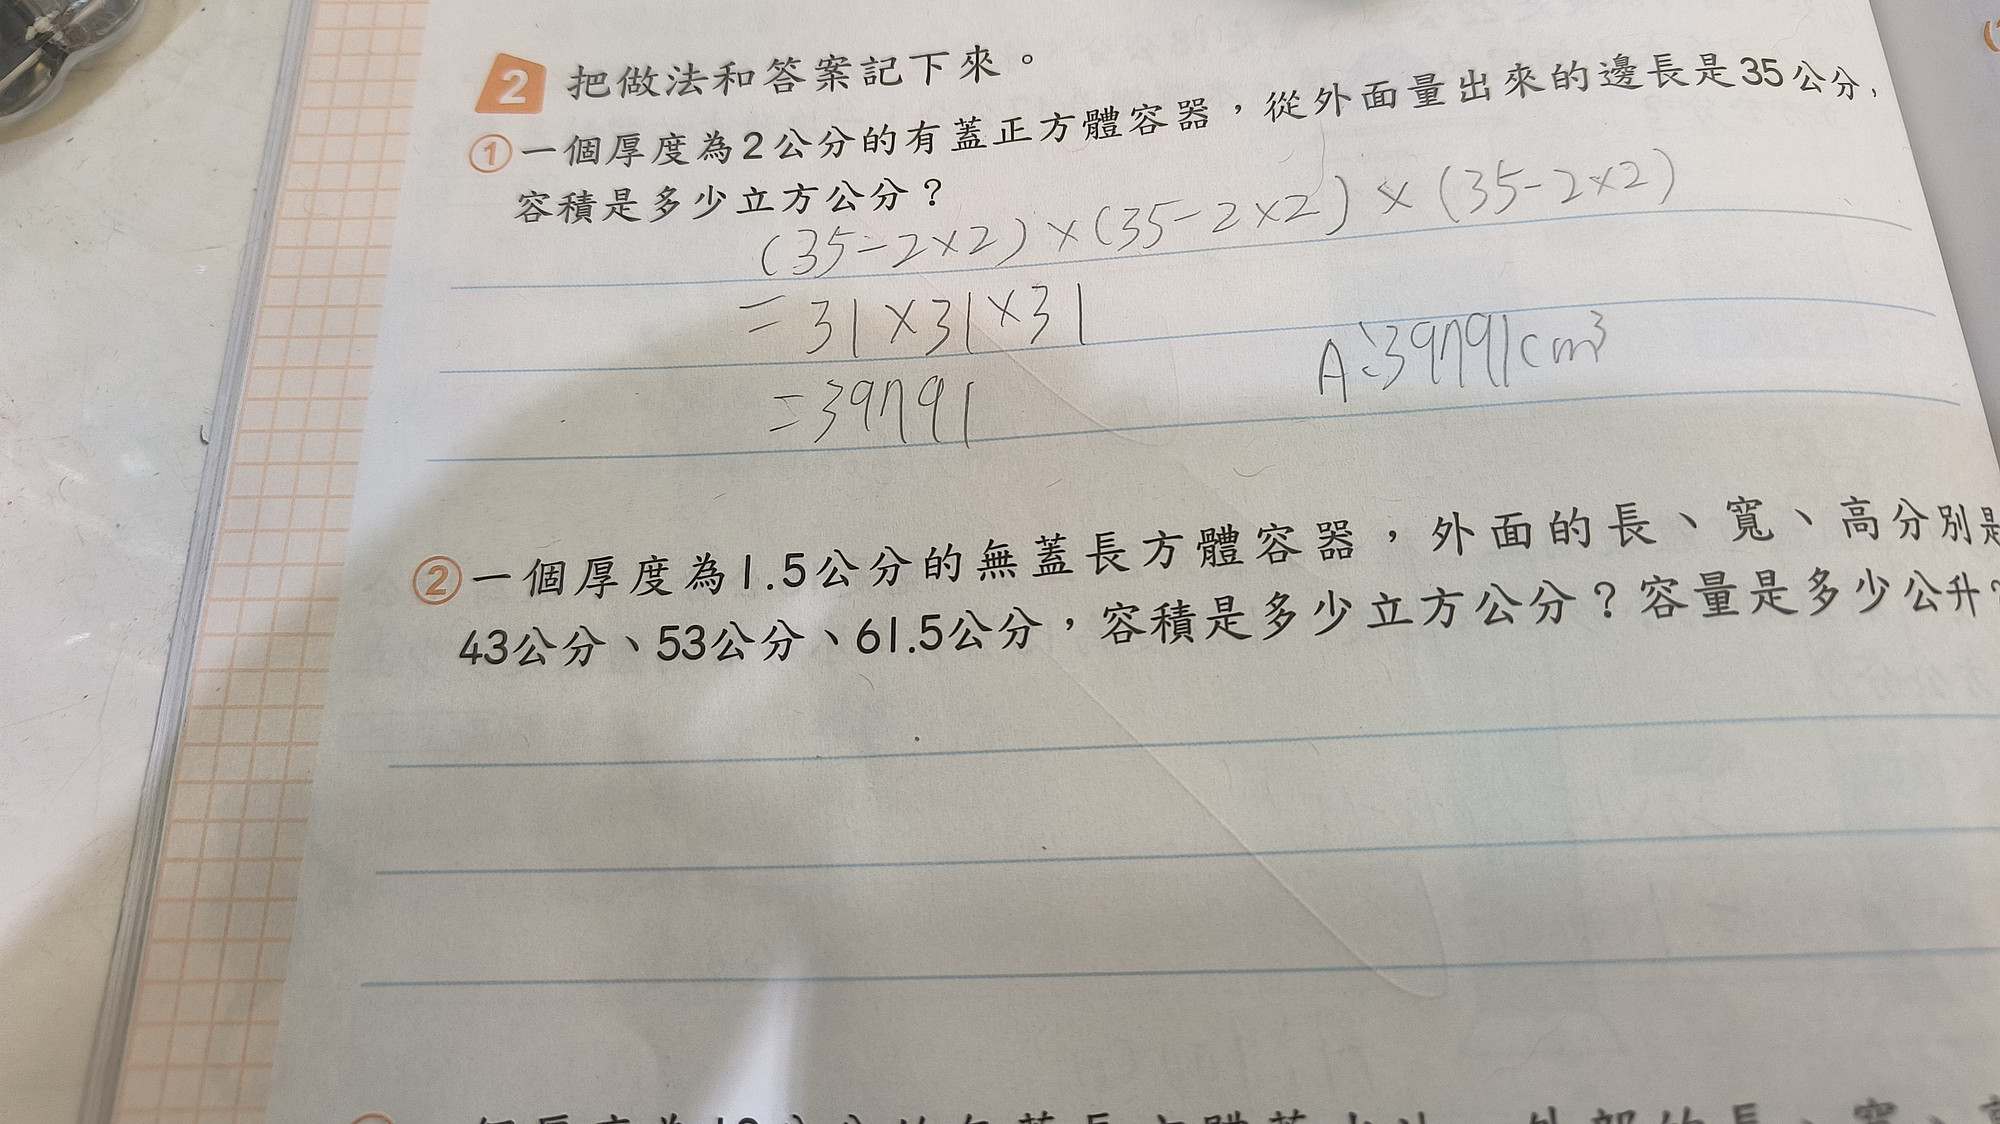 2 把做法和答案記下來。
①一個厚度為2公分的有蓋正方體容器，從外面量出來的邊長是35公分，
容積是多少立方公分？
(35-2×2)×(35-2×2)×(35-2×2)
=31×31×31
=39791
A:39791cm³
②一個厚度為1.5公分的無蓋長方體容器，外面的長、寬、高分別是
43公分、53公分、61.5公分，容積是多少立方公分？容量是多少公升？